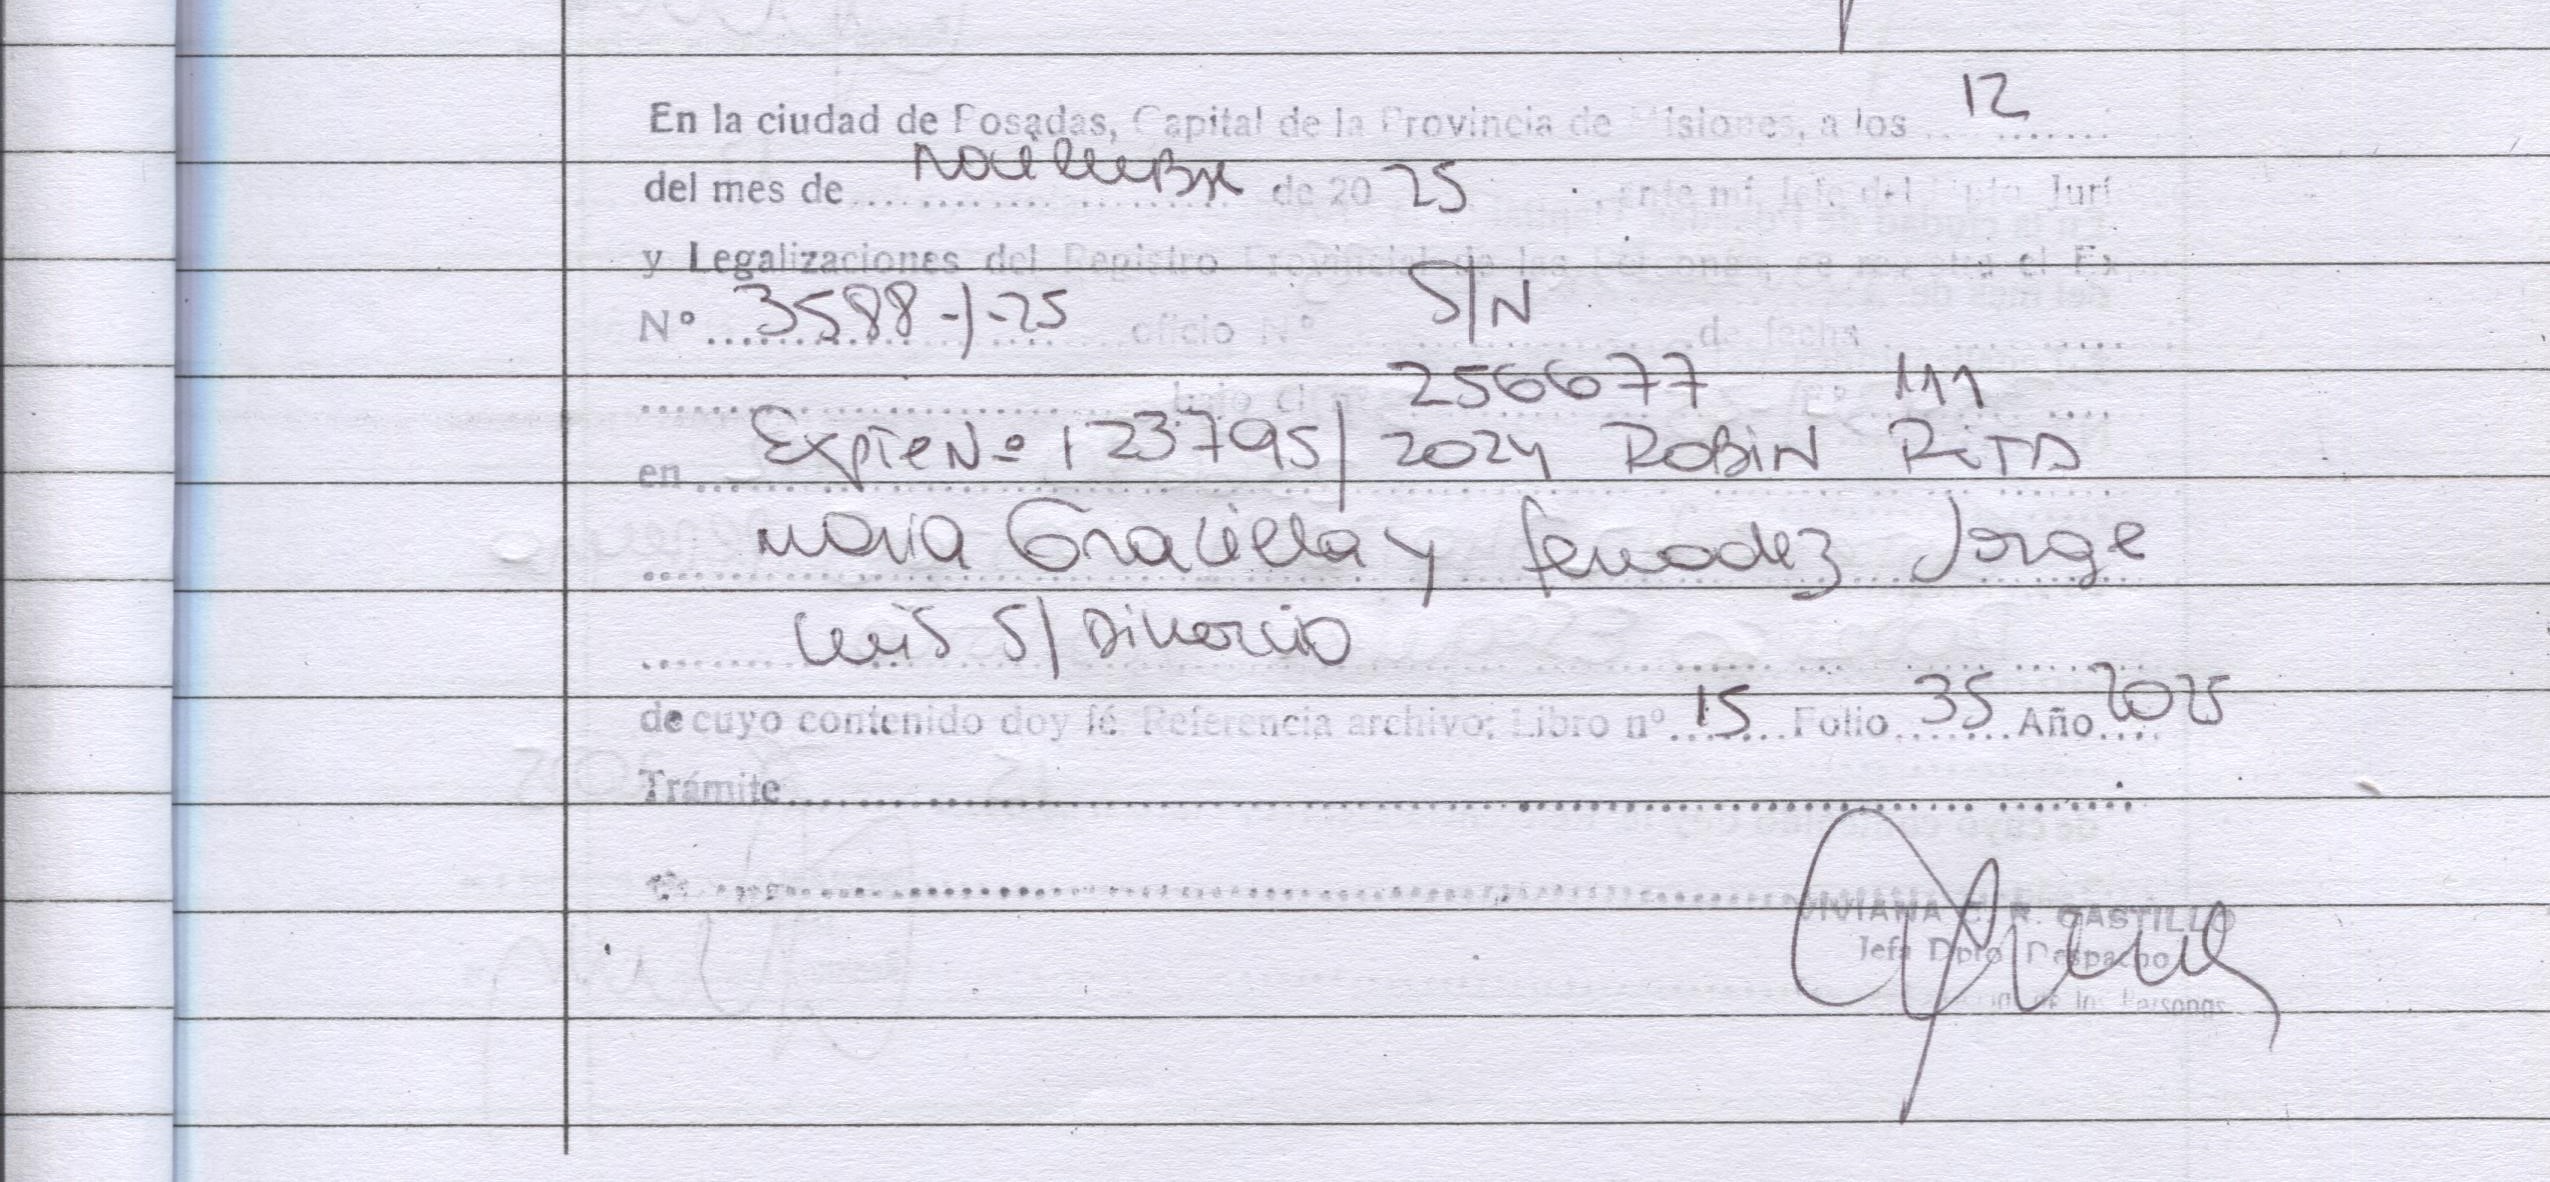 En la ciudad de Posadas, Capital de la Provincia de Misiones, a los 12
del mes de Noviembre de 20 25 , ante mí, Jefe del Dpto. Jurí
y Legalizaciones del Registro Provincial de las Personas, se registra el Ex
Nº 3588-J-25 oficio Nº S/N de fecha
bajo el nº 256677 111
en Expte Nº 123795/2024 ROBIN RITA
Maria Graciela y Fernadez Jorge
Luis S/ Divorcio
de cuyo contenido doy fé. Referencia archivo: Libro nº 15 Folio 35 Año 2025
Trámite
VIVIANA E. R. CASTILLO
Jefa Dpto Despacho
de las Personas